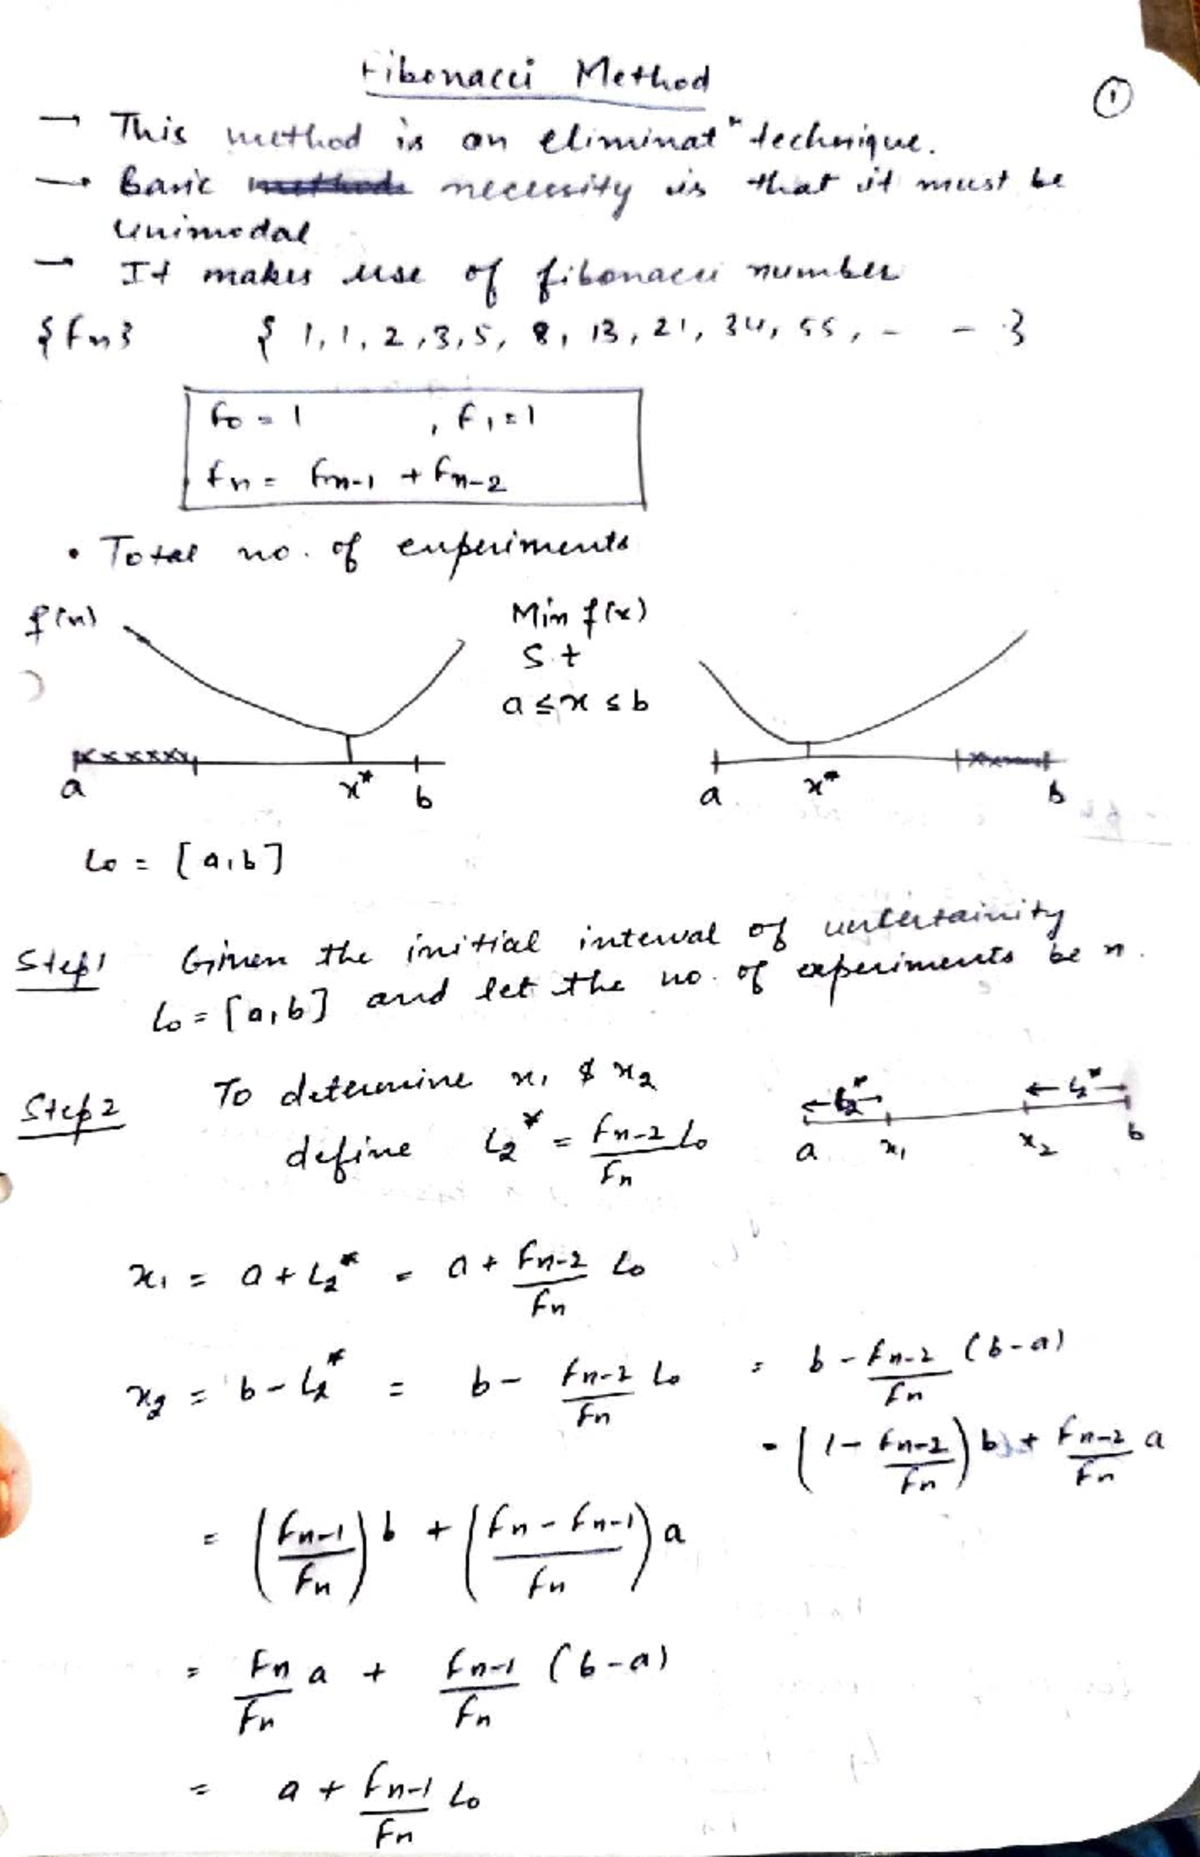 Fibonacci Method
①
→ This method is an eliminatⁿ technique.
→ Basic necessity is that it must be
unimodal
→ It makes use of fibonacci number
{Fn} { 1, 1, 2, 3, 5, 8, 13, 21, 34, 55, - - }
F0 = 1 , F1 = 1
Fn = Fn-1 + Fn-2
• Total no. of experiments
f(x)
Min f(x)
S.t
a ≤ x ≤ b
a x* b
a x* b
L0 = [a,b]
Step 1 Given the initial interval of uncertainity
L0 = [a,b] and let the no. of experiments be n.
Step 2 To determine x1 & x2
define L2* = Fn-2/Fn L0
← L2* → ← L2* →
a x1 x2 b
x1 = a + L2* = a + Fn-2/Fn L0
x2 = b - L2* = b - Fn-2/Fn L0 = b - Fn-2/Fn (b-a)
= (1 - Fn-2/Fn) b + Fn-2/Fn a
= (Fn-1/Fn) b + ((Fn - Fn-1)/Fn) a
= Fn/Fn a + Fn-1/Fn (b-a)
= a + Fn-1/Fn L0